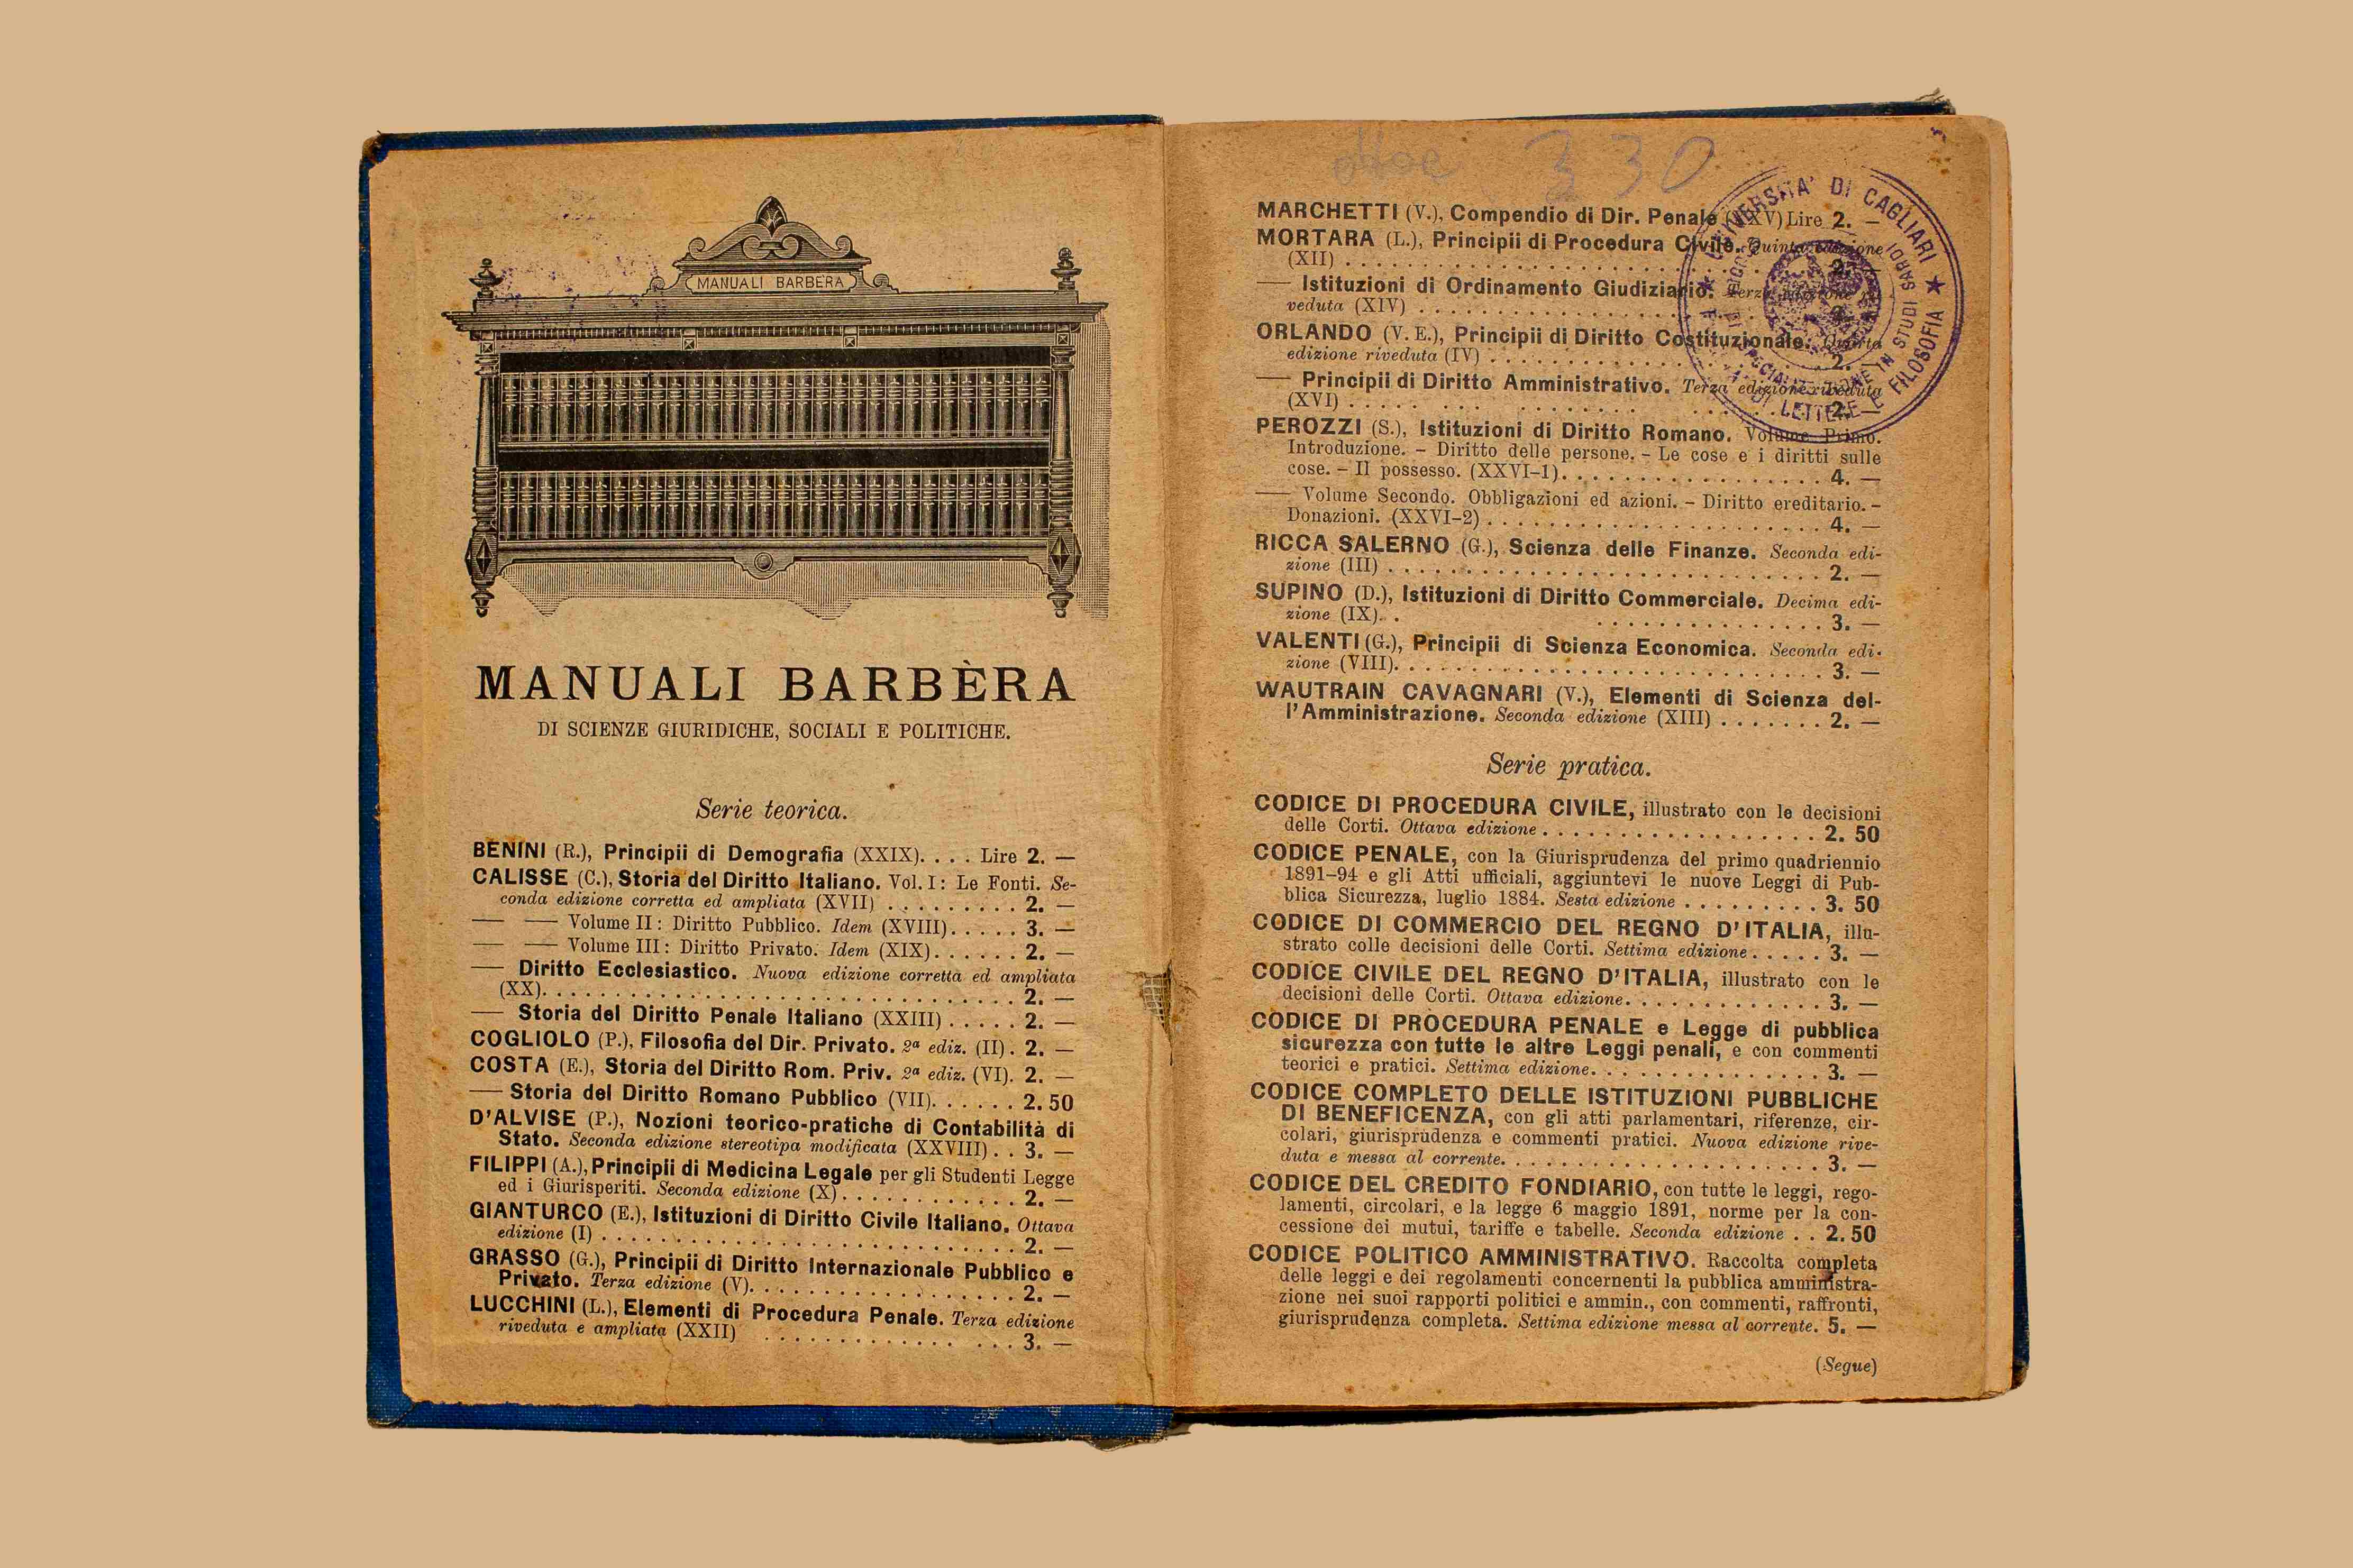 MANUALI BARBÈRA
MANUALI BARBÈRA
DI SCIENZE GIURIDICHE, SOCIALI E POLITICHE.
Serie teorica.
BENINI (R.), Principii di Demografia (XXIX). . . . Lire 2. —
CALISSE (C.), Storia del Diritto Italiano. Vol. I: Le Fonti. Se-
conda edizione corretta ed ampliata (XVII) . . . . . . . . . 2. —
— — Volume II: Diritto Pubblico. Idem (XVIII). . . . . 3. —
— — Volume III: Diritto Privato. Idem (XIX). . . . . . 2. —
— Diritto Ecclesiastico. Nuova edizione corretta ed ampliata
(XX). . . . . . . . . . . . . . . . . . . . . . . . . . . . . . . . 2. —
— Storia del Diritto Penale Italiano (XXIII) . . . . . 2. —
COGLIOLO (P.), Filosofia del Dir. Privato. 2ª ediz. (II) . 2. —
COSTA (E.), Storia del Diritto Rom. Priv. 2ª ediz. (VI). 2. —
— Storia del Diritto Romano Pubblico (VII). . . . . . 2. 50
D'ALVISE (P.), Nozioni teorico-pratiche di Contabilità di
Stato. Seconda edizione stereotipa modificata (XXVIII) . . 3. —
FILIPPI (A.), Principii di Medicina Legale per gli Studenti Legge
ed i Giurisperiti. Seconda edizione (X) . . . . . . . . . . . . 2. —
GIANTURCO (E.), Istituzioni di Diritto Civile Italiano. Ottava
edizione (I) . . . . . . . . . . . . . . . . . . . . . . . . . . . . 2. —
GRASSO (G.), Principii di Diritto Internazionale Pubblico e
Privato. Terza edizione (V). . . . . . . . . . . . . . . . . . . 2. —
LUCCHINI (L.), Elementi di Procedura Penale. Terza edizione
riveduta e ampliata (XXII) . . . . . . . . . . . . . . . . 3. —
330
MARCHETTI (V.), Compendio di Dir. Penale (XXV) Lire 2. —
MORTARA (L.), Principii di Procedura Civile. Quinta edizione
(XII) . . . . . . . . . . . . . . . . . . . . . . . . . . . . . . 2. —
— Istituzioni di Ordinamento Giudiziario. Terza edizione ri-
veduta (XIV) . . . . . . . . . . . . . . . . . . . . . . . . . 2. —
ORLANDO (V. E.), Principii di Diritto Costituzionale. Quarta
edizione riveduta (IV) . . . . . . . . . . . . . . . . . . . . . 2. —
— Principii di Diritto Amministrativo. Terza edizione riveduta
(XVI) . . . . . . . . . . . . . . . . . . . . . . . . . . . . . 2. —
PEROZZI (S.), Istituzioni di Diritto Romano. Volume Primo.
Introduzione. – Diritto delle persone. – Le cose e i diritti sulle
cose. – Il possesso. (XXVI-1). . . . . . . . . . . . . . . . . 4. —
— Volume Secondo. Obbligazioni ed azioni. – Diritto ereditario. –
Donazioni. (XXVI-2) . . . . . . . . . . . . . . . . . . . . . . 4. —
RICCA SALERNO (G.), Scienza delle Finanze. Seconda edi-
zione (III) . . . . . . . . . . . . . . . . . . . . . . . . . . . . 2. —
SUPINO (D.), Istituzioni di Diritto Commerciale. Decima edi-
zione (IX). . . . . . . . . . . . . . . . . 3. —
VALENTI (G.), Principii di Scienza Economica. Seconda edi-
zione (VIII). . . . . . . . . . . . . . . . . . . . . . . . . . . . 3. —
WAUTRAIN CAVAGNARI (V.), Elementi di Scienza del-
l'Amministrazione. Seconda edizione (XIII) . . . . . . . 2. —
Serie pratica.
CODICE DI PROCEDURA CIVILE, illustrato con le decisioni
delle Corti. Ottava edizione . . . . . . . . . . . . . . . . . . 2. 50
CODICE PENALE, con la Giurisprudenza del primo quadriennio
1891-94 e gli Atti ufficiali, aggiuntevi le nuove Leggi di Pub-
blica Sicurezza, luglio 1884. Sesta edizione . . . . . . . . . 3. 50
CODICE DI COMMERCIO DEL REGNO D'ITALIA, illu-
strato colle decisioni delle Corti. Settima edizione . . . . . 3. —
CODICE CIVILE DEL REGNO D'ITALIA, illustrato con le
decisioni delle Corti. Ottava edizione. . . . . . . . . . . . . 3. —
CODICE DI PROCEDURA PENALE e Legge di pubblica
sicurezza con tutte le altre Leggi penali, e con commenti
teorici e pratici. Settima edizione. . . . . . . . . . . . . . . 3. —
CODICE COMPLETO DELLE ISTITUZIONI PUBBLICHE
DI BENEFICENZA, con gli atti parlamentari, riferenze, cir-
colari, giurisprudenza e commenti pratici. Nuova edizione rive-
duta e messa al corrente. . . . . . . . . . . . . . . . . . . . . 3. —
CODICE DEL CREDITO FONDIARIO, con tutte le leggi, rego-
lamenti, circolari, e la legge 6 maggio 1891, norme per la con-
cessione dei mutui, tariffe e tabelle. Seconda edizione . . 2. 50
CODICE POLITICO AMMINISTRATIVO. Raccolta completa
delle leggi e dei regolamenti concernenti la pubblica amministra-
zione nei suoi rapporti politici e ammin., con commenti, raffronti,
giurisprudenza completa. Settima edizione messa al corrente. 5. —
(Segue)
UNIVERSITA' DI CAGLIARI ★
DI LETTERE E FILOSOFIA
IN STUDI SARDI